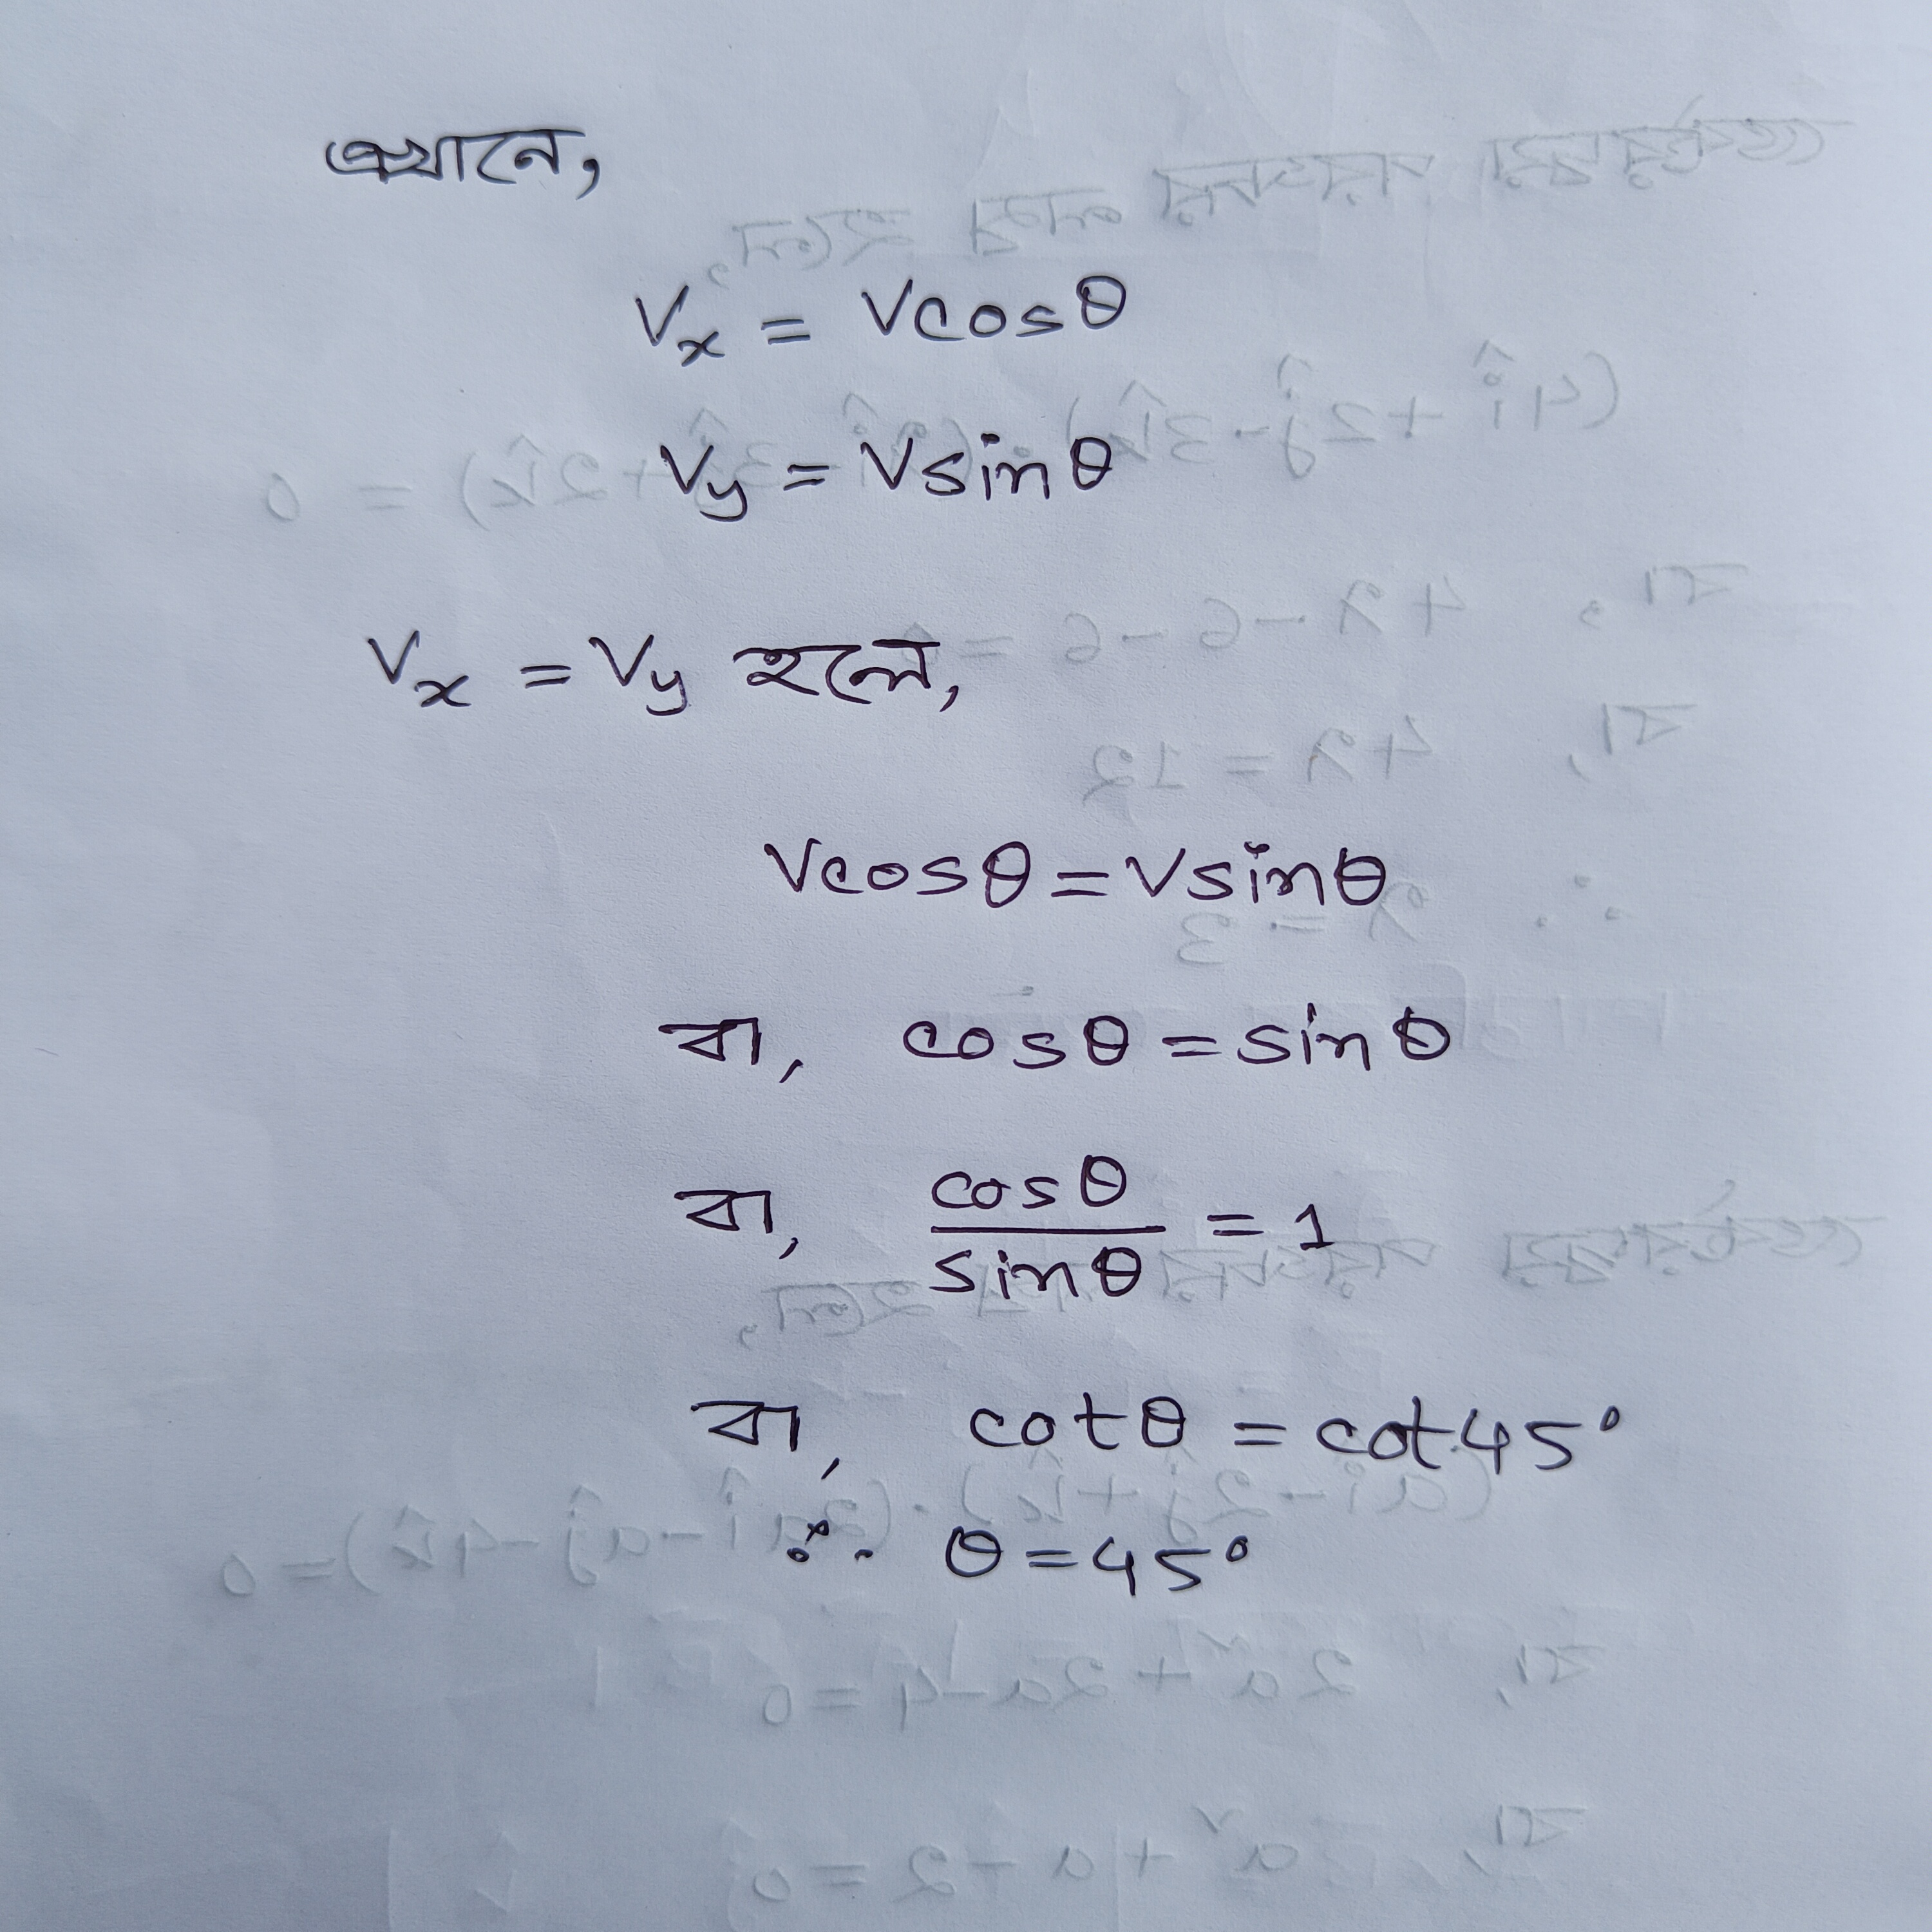 এখানে,
Vx = Vcosθ
Vy = Vsinθ
Vx = Vy হলে,
Vcosθ = Vsinθ
বা, cosθ = sinθ
বা, cosθ/sinθ = 1
বা, cotθ = cot45°
∴ θ = 45°